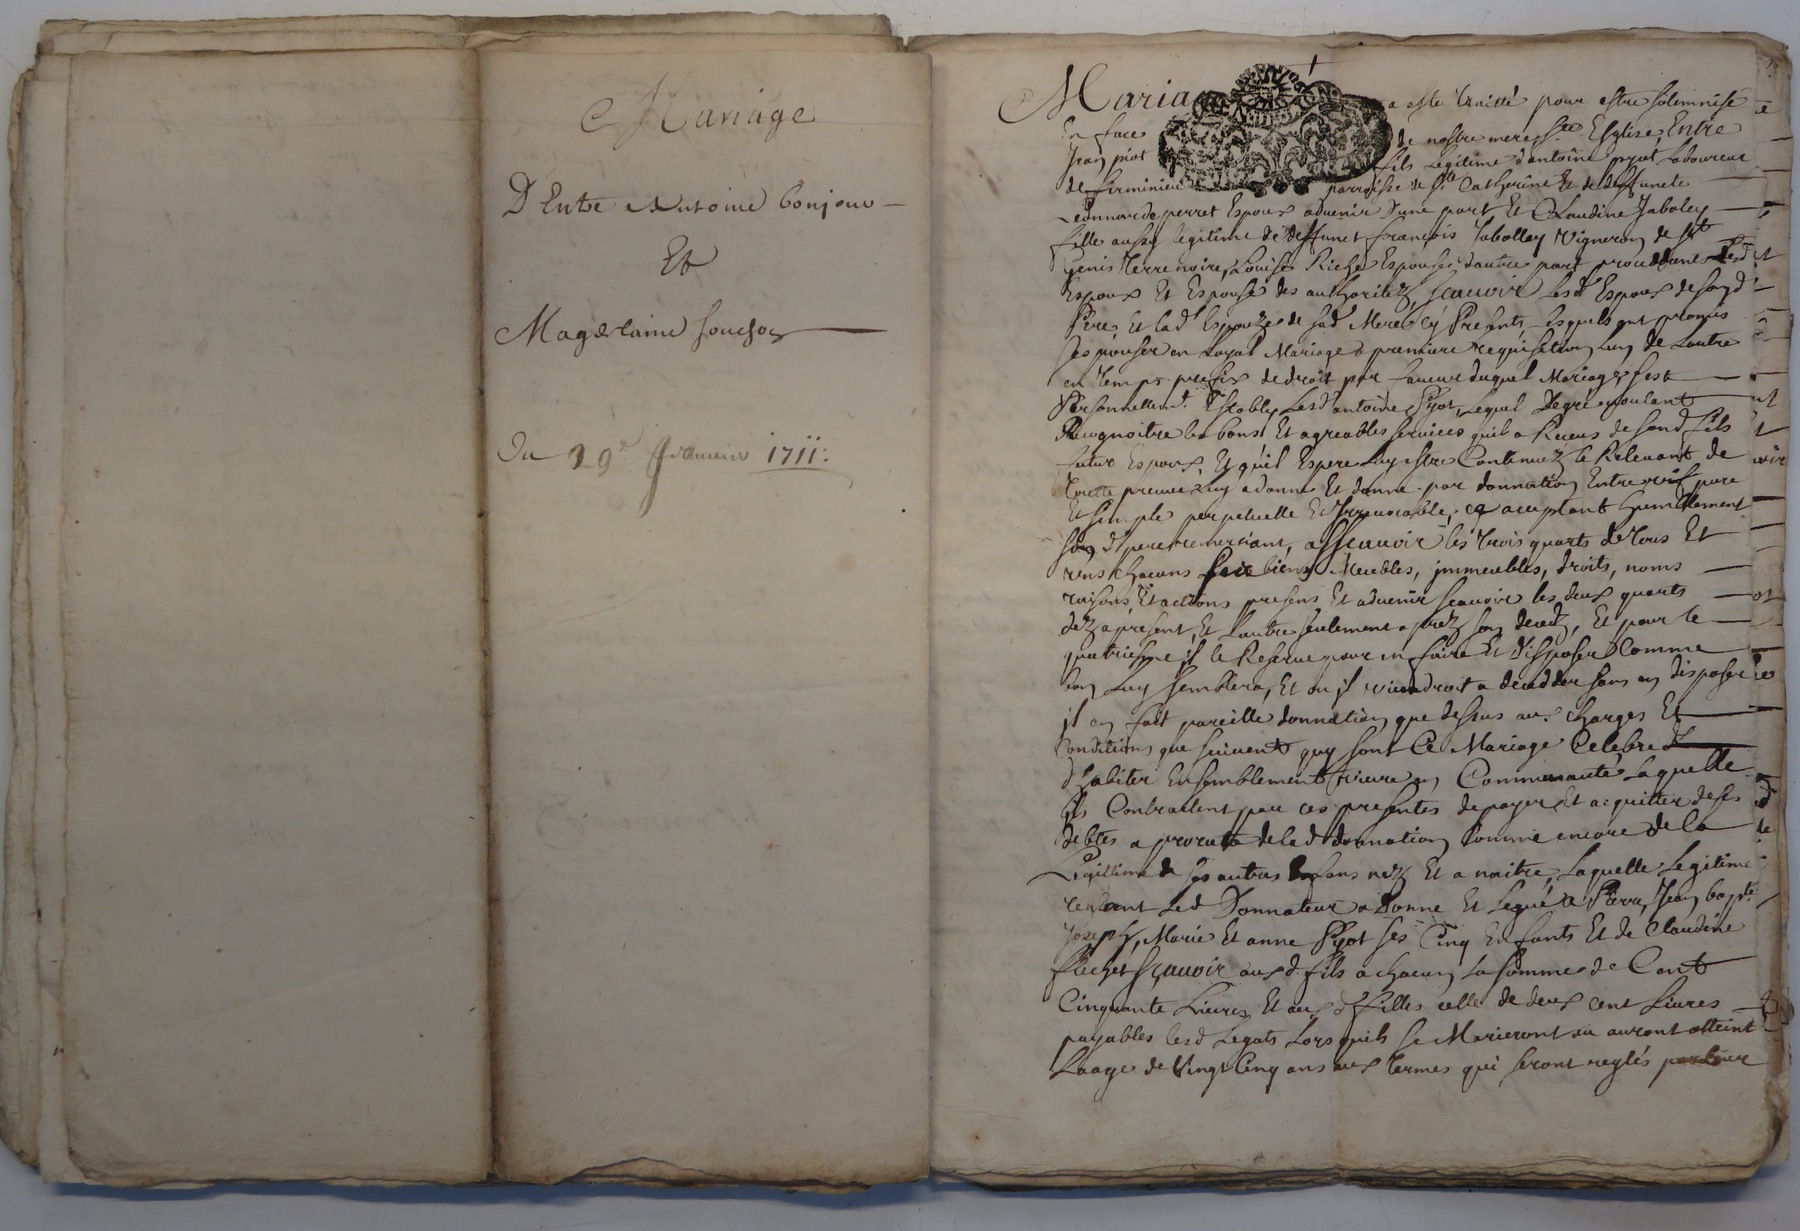 Mariage
D'Entre Antoine bonjour
Et
Magdelaine souchon
Du 29e Janvier 1711.
Mariage a este traitté pour estre solemnisé
En face de nostre mere Ste Esglise, Entre
Jean piot fils legitime d'antoine pyot Laboureur
de firminieu parroisse de Ste Catherine Et de deffuncte
Leonnarde perret Espoux aduenir d'une part, Et Claudine Jaboley
fille aussy legitime de deffunct françois Jabolley vigneron de St
Genis terre noire, & Louise Riche Espouse d'autre part procedants Lesd
Espoux Et Espouse des authoritez, scauoir Led Espoux de sond
Pere, Et lad Espouze de sad Mere cy Presents, Lesquels ont promis
s'espouser en Loyal Mariage a premiere requisition Lun de Lautre
en temps prefix de droit par faueur duquel Mariage s'est
Personnellemt Establly Led antoine Pyot, Lequel de gré voulant
Recognoitre les bons Et agreables seruices quil a Receus de sond fils
futur Espoux, Et qu'il Espere Luy estre Continuez le Releuant de
toutte preuue Luy a donné Et donne par donnation Entre vifs pure
Et simple perpetuelle Et Irreuocable, ce acceptant humblement
sond pere remerciant, assçauoir les trois quarts de tous Et
vns chacuns ses biens Meubles, immeubles, droits, noms
raisons, Et actions presens Et aduenir scauoir les deux quarts
dez a present, Et Lautre seulement aprez son decedz, Et pour le
quatriesme il le Reserue pour en faire Et disposer Comme
bon Luy semblera, Et ou il viendroit a decedder sans en disposer
il en fait pareille donnation que dessus aux charges Et
Conditions que suiuent quy sont Ce Mariage Celebré
d'habiter Ensemblement viure en Communauté Laquelle
ils Contractent par ces presentes de payer Et acquitter de ses
debtes a prorata de lad donnation Comme encore de la
Legitime de ses autres Enfans nez Et a naitre, Laquelle Legitime
Led Donnateur a donné Et Legué a Pierre, Jean bapte
Joseph, Marie Et anne Pyot ses Cinq Enfants Et de Claudine
flechet sçauoir auxd fils a chacun La somme de Cent
Cinquante Liures Et aux d filles celle de deux cent Liures
payables lesd Legats Lors quils se Marieront ou auront atteint
Laage de Vingt Cinq ans aux termes qui seront reglés par leur